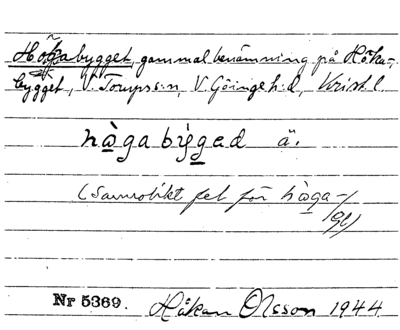 Högabygget, gammal benämning på Höka-
bygget, V. Torups s:n, V. Göinge h:d, Krist. l.
hàga býged ä.
(Sannolikt fel för hàga-/
Nr 5369. Håkan Olsson 1944